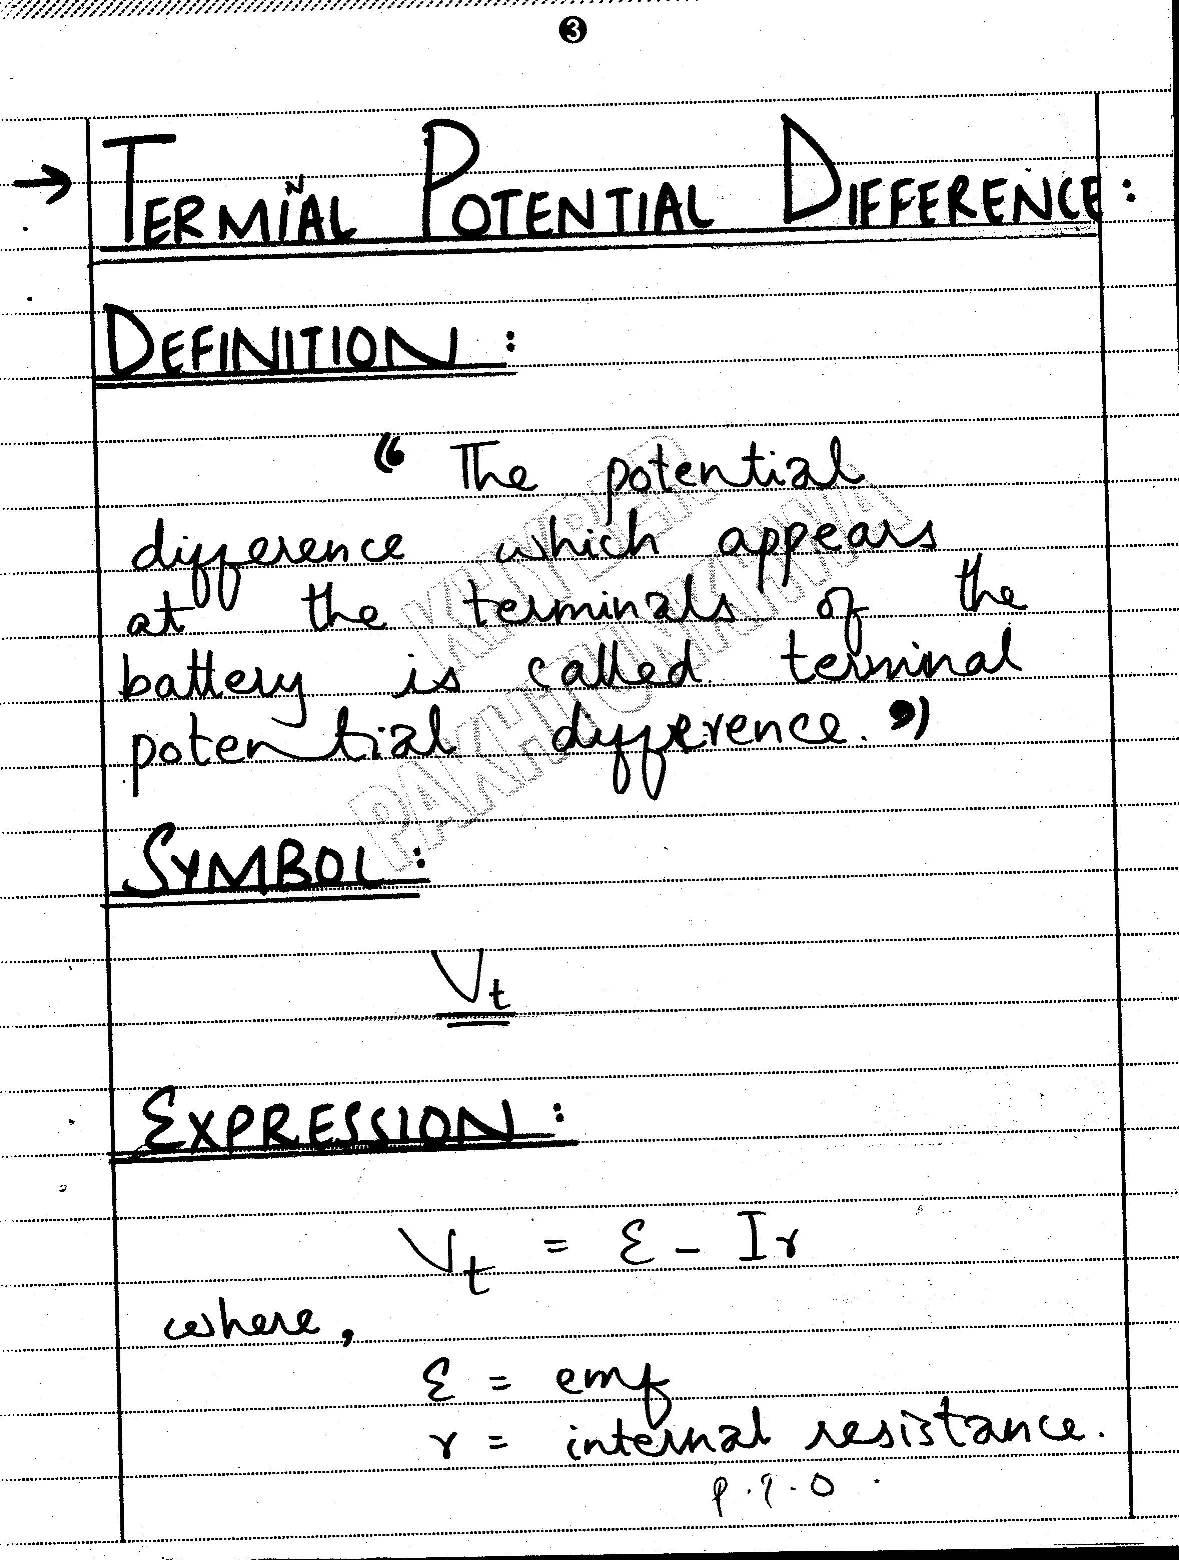 3
→ TERMIÑAL POTENTIAL DIFFERENCE:
DEFINITION:
“ The potential
difference which appears
at the terminals of the
battery is called terminal
potential difference. ”
SYMBOL:
Vt
EXPRESSION:
Vt = ε - Ir
where,
ε = emf
r = internal resistance.
P.T.O.
KHYBER
PAKHTUNKHWA